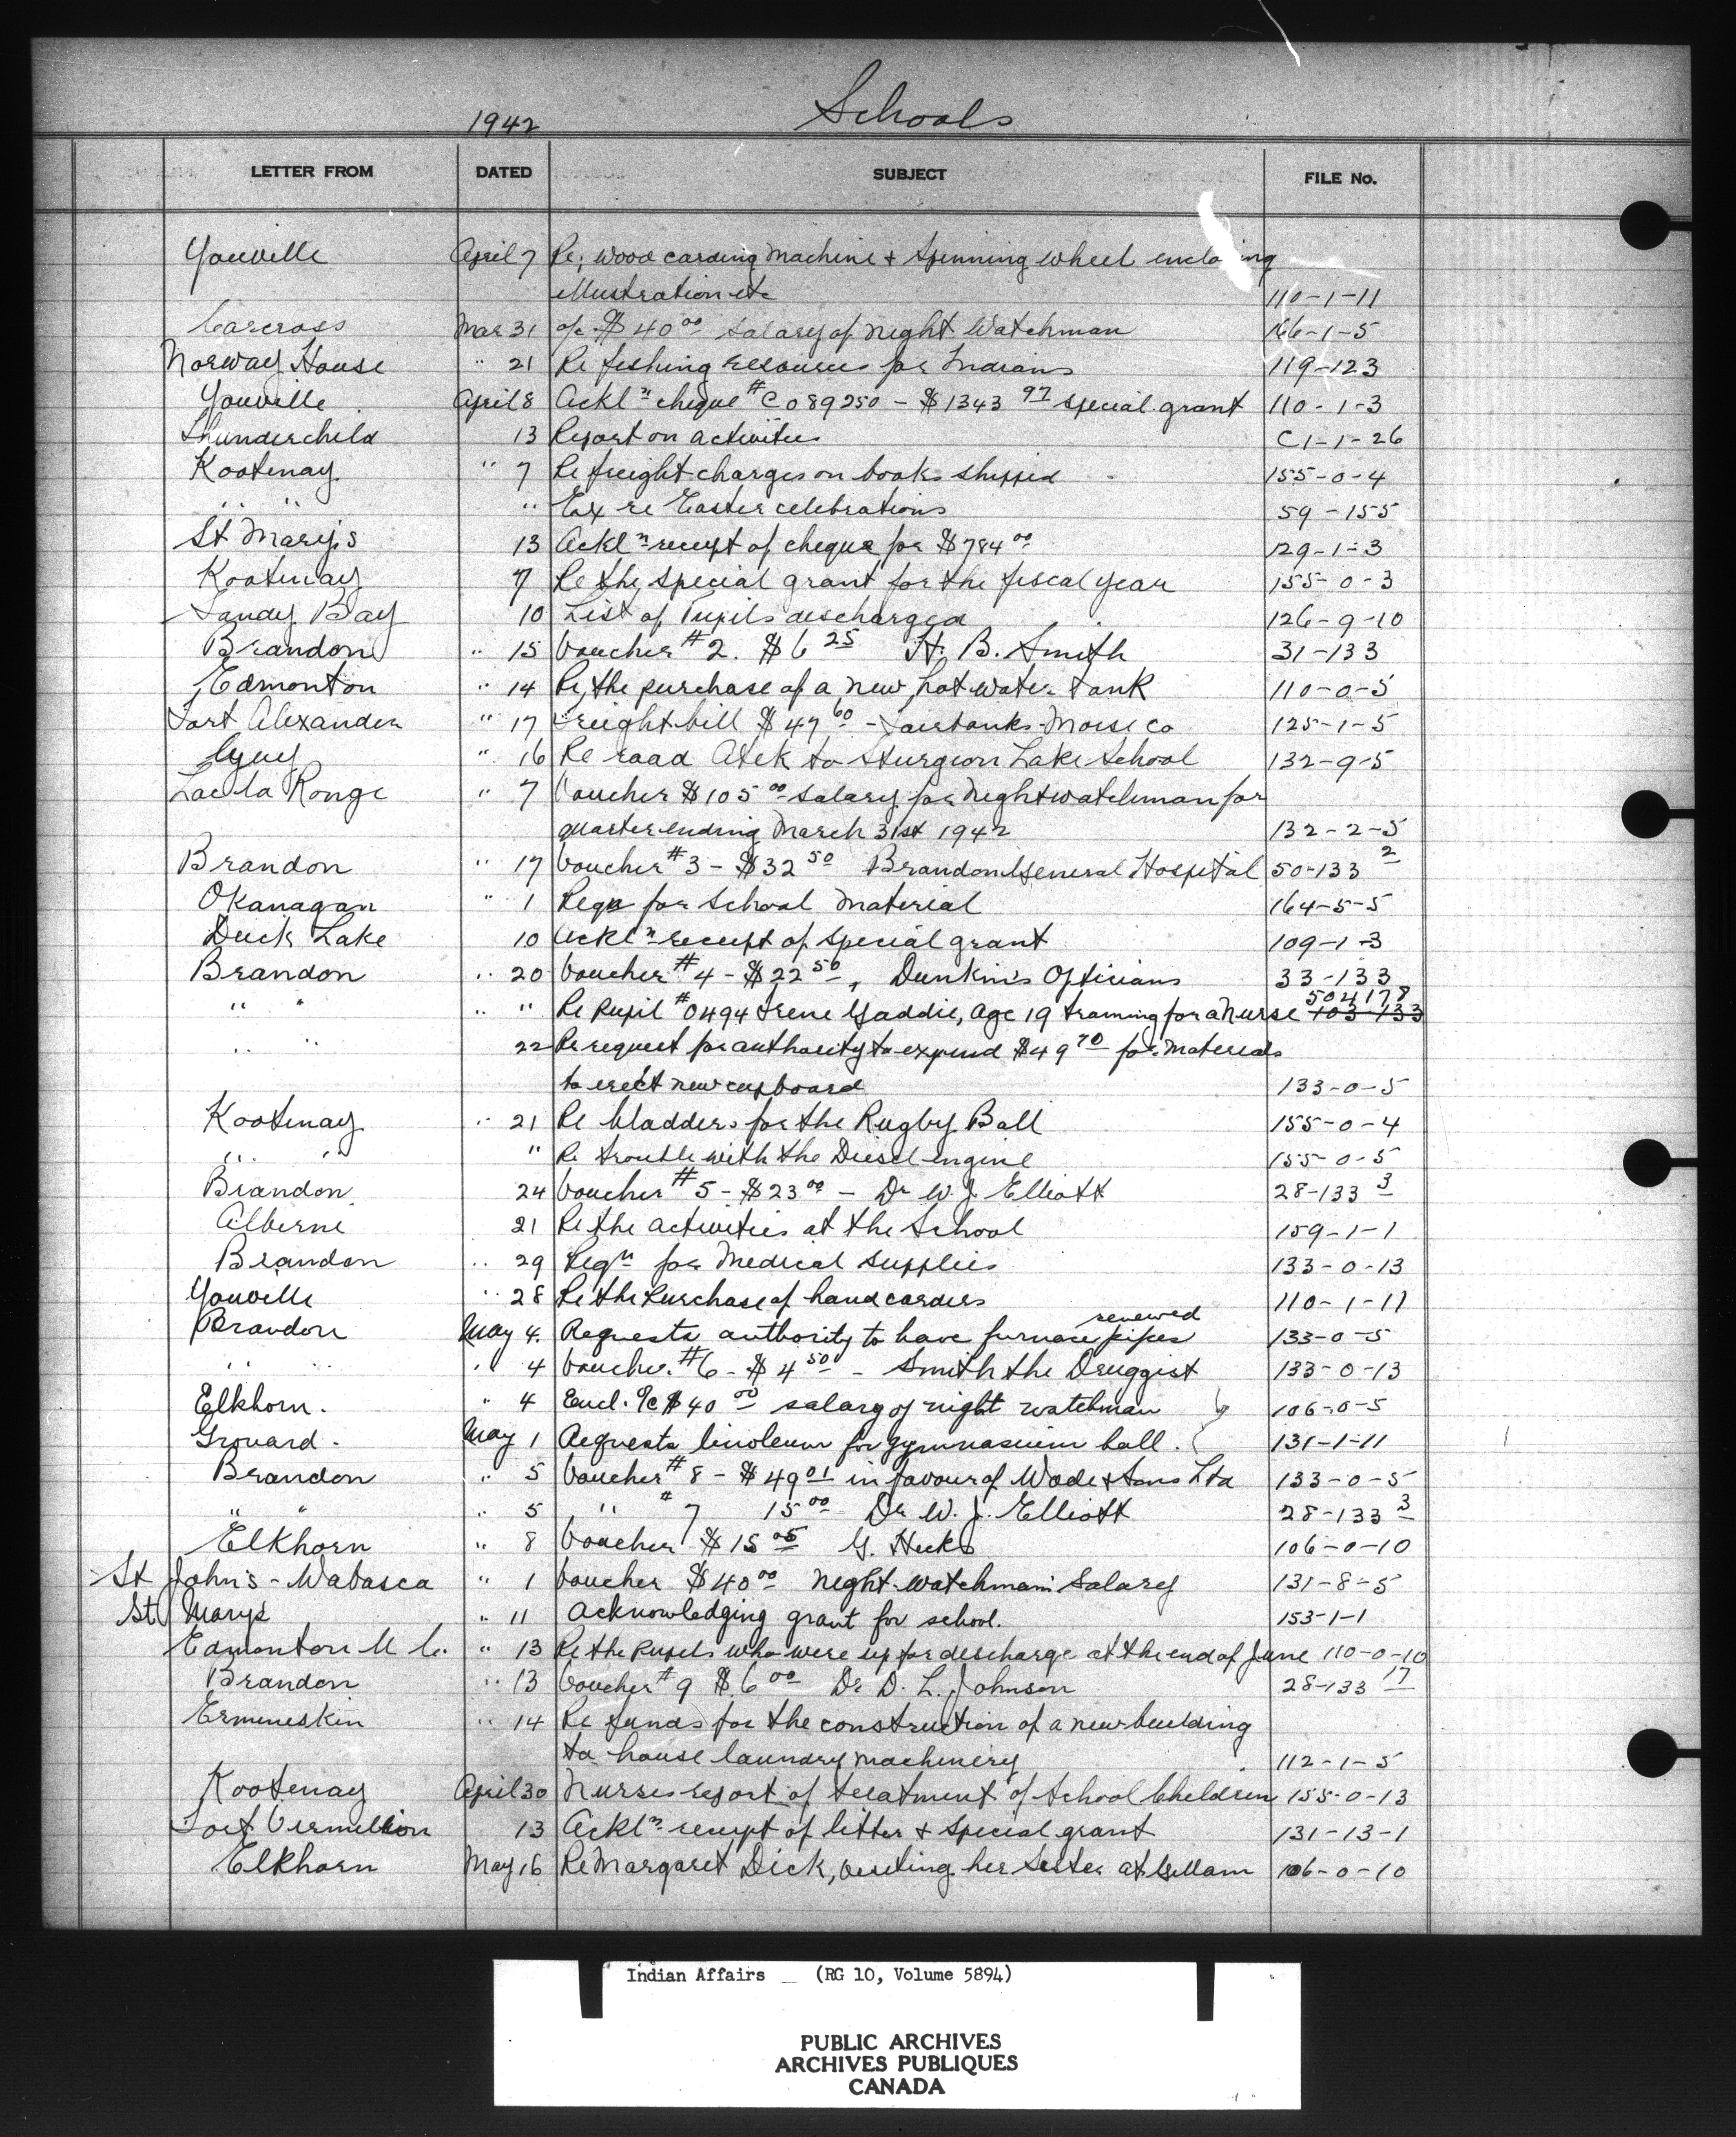 1942 Schools
LETTER FROM DATED SUBJECT FILE No.
Youville April 7 Re; wood carding machine & Spinning wheel enclosing
illustration etc 110-1-11
Carcross Mar 31 a/c $40.00 salary of night Watchman 166-1-5
Norway House " 21 Re fishing resources for Indians 119-123
Youville April 8 Ackl'n cheque # C089250 - $1343 97 special grant 110-1-3
Thunderchild 13 Report on activities C1-1-26
Kootenay " 7 Re freight charges on books shipped 155-0-4
" " " Ex re Easter celebrations 59-155
St Mary's 13 Ackl'n receipt of cheque for $784 00 129-1-3
Kootenay 7 Re the special grant for the fiscal year 155-0-3
Sandy Bay 10 List of Pupils discharged 126-9-10
Brandon " 15 Voucher #2. $6 25 H. B. Smith 31-133
Edmonton " 14 Re, the purchase of a new hot water tank 110-0-5
Fort Alexander " 17 Freight bill $47 60 - Fairbanks-Morse Co 125-1-5
" 16 Re road to Sturgeon Lake School 132-9-5
Lac la Ronge " 7 Voucher $105 00 salary for nightwatchman for
quarter ending March 31st 1942 132-2-5
Brandon " 17 Voucher #3 - $32 50 Brandon General Hospital 50-133 2
Okanagan " 1 Reqn for School material 164-5-5
Duck Lake 10 Ackl'n receipt of special grant 109-1-3
Brandon " 20 Voucher #4 - $22 50, Dunkin's Opticians 33-133
504178
" " " " Re Pupil #0494 Irene Gaddie, age 19 training for a nurse 103-133
" " 22 Re request for authority to expend $49 70 for materials
to erect new cupboard 133-0-5
Kootenay " 21 Re bladders for the Rugby Ball 155-0-4
" " " Re trouble with the Diesel engine 155-0-5
Brandon 24 Voucher #5 - $23 00 - Dr W. J. Elliott 28-133 3
Alberni 21 Re the activities at the School 159-1-1
Brandon " 29 Reqn for Medical supplies 133-0-13
Youville " 28 Re the purchase of hand carders 110-1-11
renewed
Brandon May 4. Requests authority to have furnace pipes 133-0-5
" " " 4 Voucher #6 - $4 50 - Smith the Druggist 133-0-13
Elkhorn. " 4 Encl. a/c $40 00 salary of night watchman 106-0-5
Grouard. May 1 Requests linoleum for gymnasium hall. 131-1-11
Brandon " 5 Voucher #8 - $49 01 in favour of Wade & Sons Ltd 133-0-5
" " " 5 " #7 15 00 Dr W. J. Elliott 28-133 3
Elkhorn " 8 Voucher $15 05 G. Hicks 106-0-10
St John's - Wabasca " 1 Voucher $40 00 Night-watchman's Salary 131-8-5
St Mary's " 11 Acknowledging grant for school. 153-1-1
Edmonton " 13 Re the pupils who were up for discharge at the end of June 110-0-10
Brandon " 13 Voucher #9 $6 00 Dr D. L. Johnson 28-133 17
Ermineskin " 14 Re funds for the construction of a new building
to house laundry machinery 112-1-5
Kootenay April 30 Nurses report of treatment of School Children 155-0-13
Fort Vermilion 13 Ackl'n receipt of letter & special grant 131-13-1
Elkhorn May 16 Re Margaret Dick, visiting her sister at Gillam 106-0-10
Indian Affairs (RG 10, Volume 5894)
PUBLIC ARCHIVES
ARCHIVES PUBLIQUES
CANADA